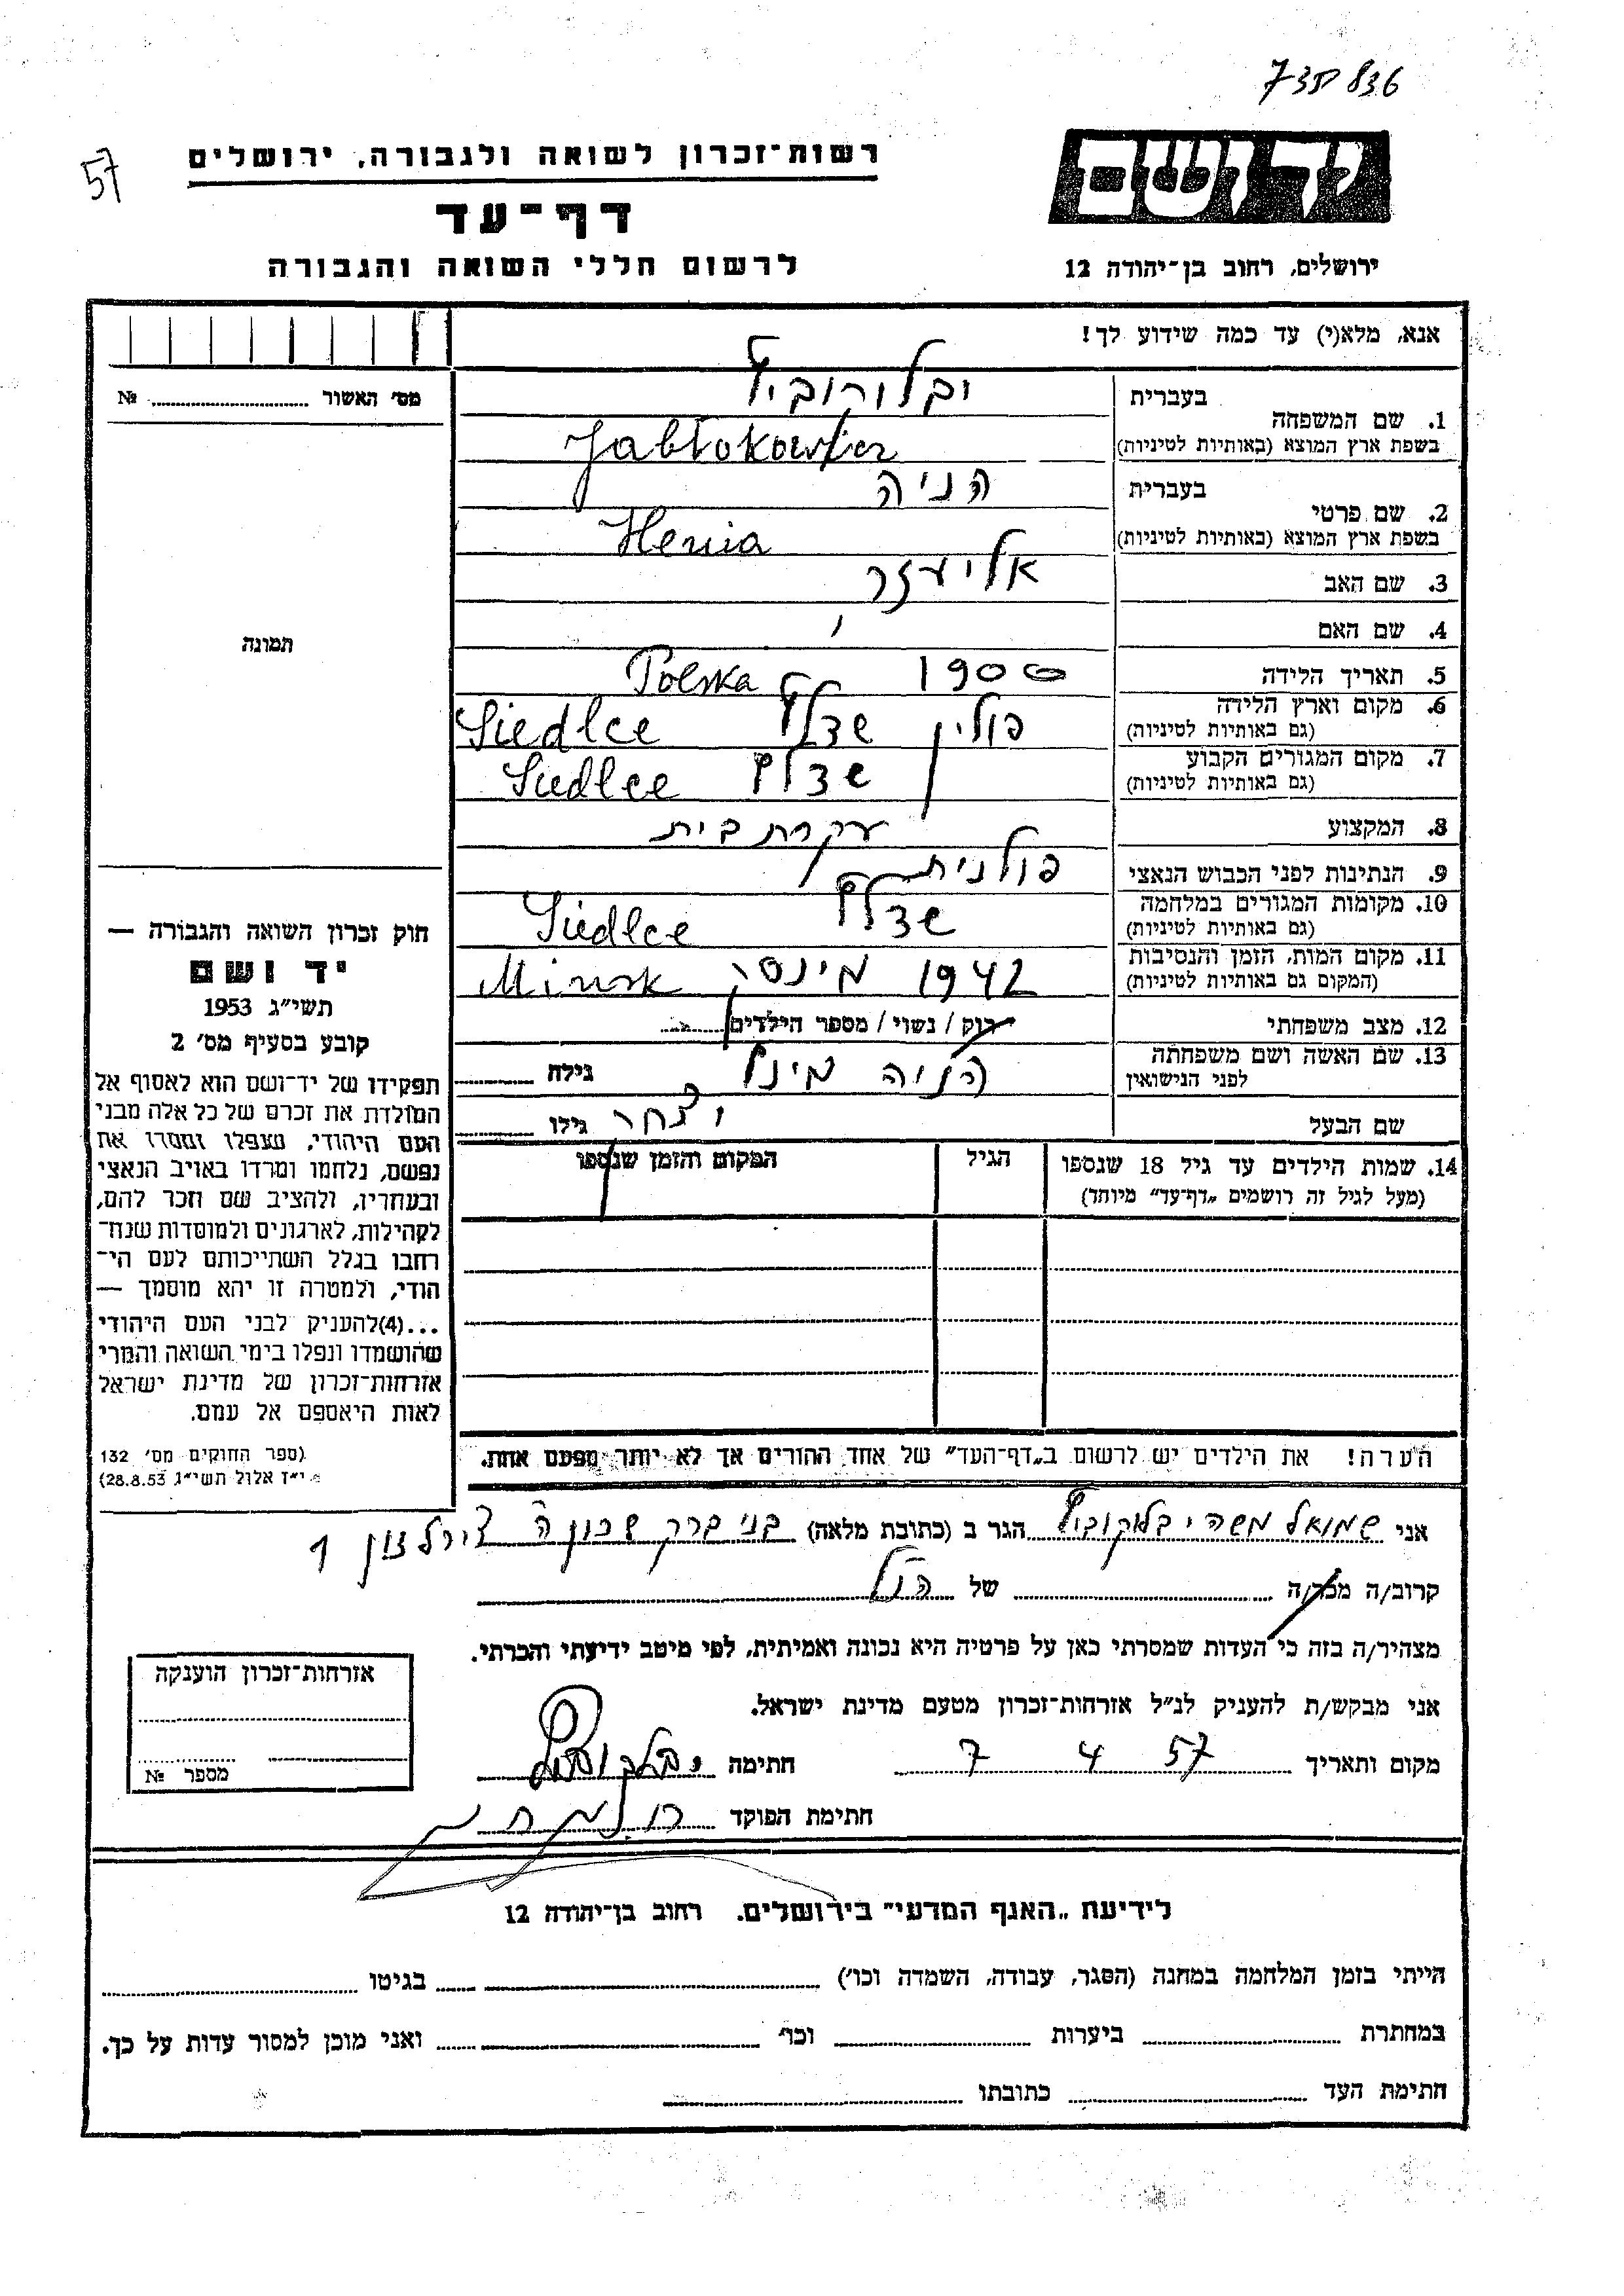 836 פ 73
57
רשות־זכרון לשואה ולגבורה, ירושלים
יד ושם
דף־עד
לרשום חללי השואה והגבורה
ירושלים, רחוב בן־יהודה 12
אנא, מלא(י) עד כמה שידוע לך!
מס' האשור № 
1. שם המשפחה בעברית
בשפת ארץ המוצא (באותיות לטיניות)
2. שם פרטי בעברית הניה
בשפת ארץ המוצא (באותיות לטיניות) Henia
3. שם האב אליעזר
4. שם האם
5. תאריך הלידה 1900
6. מקום וארץ הלידה פולין שדלץ Siedlce Polska
(גם באותיות לטיניות)
7. מקום המגורים הקבוע שדלץ Siedlce
(גם באותיות לטיניות)
8. המקצוע עקרת בית
9. הנתינות לפני הכבוש הנאצי פולנית
10. מקומות המגורים במלחמה שדלץ Siedlce
(גם באותיות לטיניות)
11. מקום המות, הזמן והנסיבות 1942 מינסק Minsk
(המקום גם באותיות לטיניות)
12. מצב משפחתי רווק / נשוי / מספר הילדים
13. שם האשה ושם משפחתה הניה גילה
לפני הנישואין
שם הבעל יצחק גילו
14. שמות הילדים עד גיל 18 שנספו הגיל המקום והזמן שנספו
(מעל לגיל זה רושמים „דף־עד" מיוחד)
הערה! את הילדים יש לרשום ב„דף־העד" של אחד ההורים אך לא יותר מפעם אחת.
תמונה
חוק זכרון השואה והגבורה —
יד ושם
תשי"ג 1953
קובע בסעיף מס' 2
תפקידו של יד־ושם הוא לאסוף אל
המולדת את זכרם של כל אלה מבני
העם היהודי, שנפלו ומסרו את
נפשם, נלחמו ומרדו באויב הנאצי
ובעוזריו, ולהציב שם וזכר להם,
לקהילות, לארגונים ולמוסדות שנח־
רבו בגלל השתייכותם לעם הי־
הודי, ולמטרה זו יהא מוסמך —
...(4) להעניק לבני העם היהודי
שהושמדו ונפלו בימי השואה והמרי
אזרחות־זכרון של מדינת ישראל
לאות היאספם אל עמם.
(ספר החוקים מס' 132
י"ז אלול תשי"ג 28.8.53)
אני שמואל משה יבלוקוביץ הגר ב (כתובת מלאה) בני ברק שכון ה
קרוב/ה מכר/ה של הנ"ל
מצהיר/ה בזה כי העדות שמסרתי כאן על פרטיה היא נכונה ואמיתית, לפי מיטב ידיעתי והכרתי.
אני מבקש/ת להעניק לנ"ל אזרחות־זכרון מטעם מדינת ישראל.
מקום ותאריך 7 4 57 חתימה
חתימת הפוקד
אזרחות־זכרון הוענקה
מספר №
לידיעת „האגף המדעי" בירושלים. רחוב בן־יהודה 12
הייתי בזמן המלחמה במחנה (הסגר, עבודה, השמדה וכו') בגיטו
במחתרת ביערות וכו' ואני מוכן למסור עדות על כך.
חתימת העד כתובתו